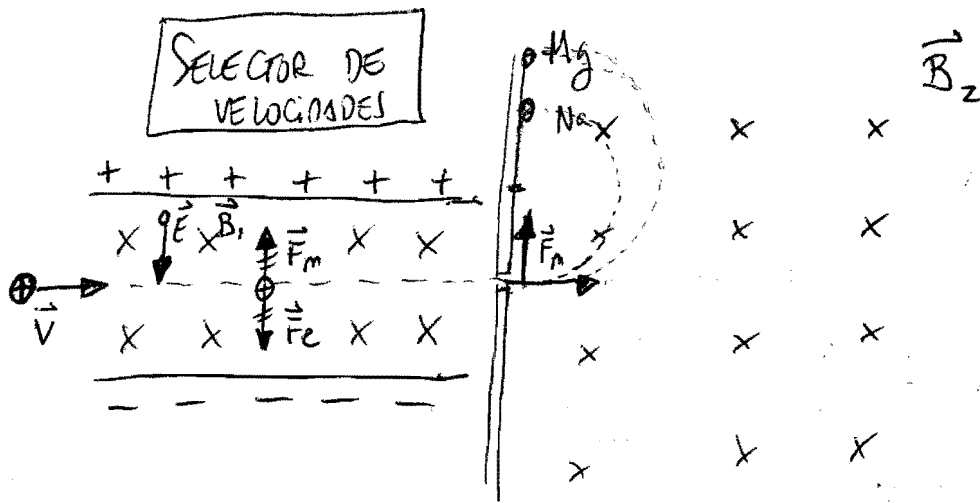 SELECTOR DE
VELOCIDADES
Mg
Na
B₂
+ + + + + +
E B₁
× × × ×
Fm
V
Fe
× × × ×
− − − − −
Fm
× × ×
× × ×
× × ×
× × ×